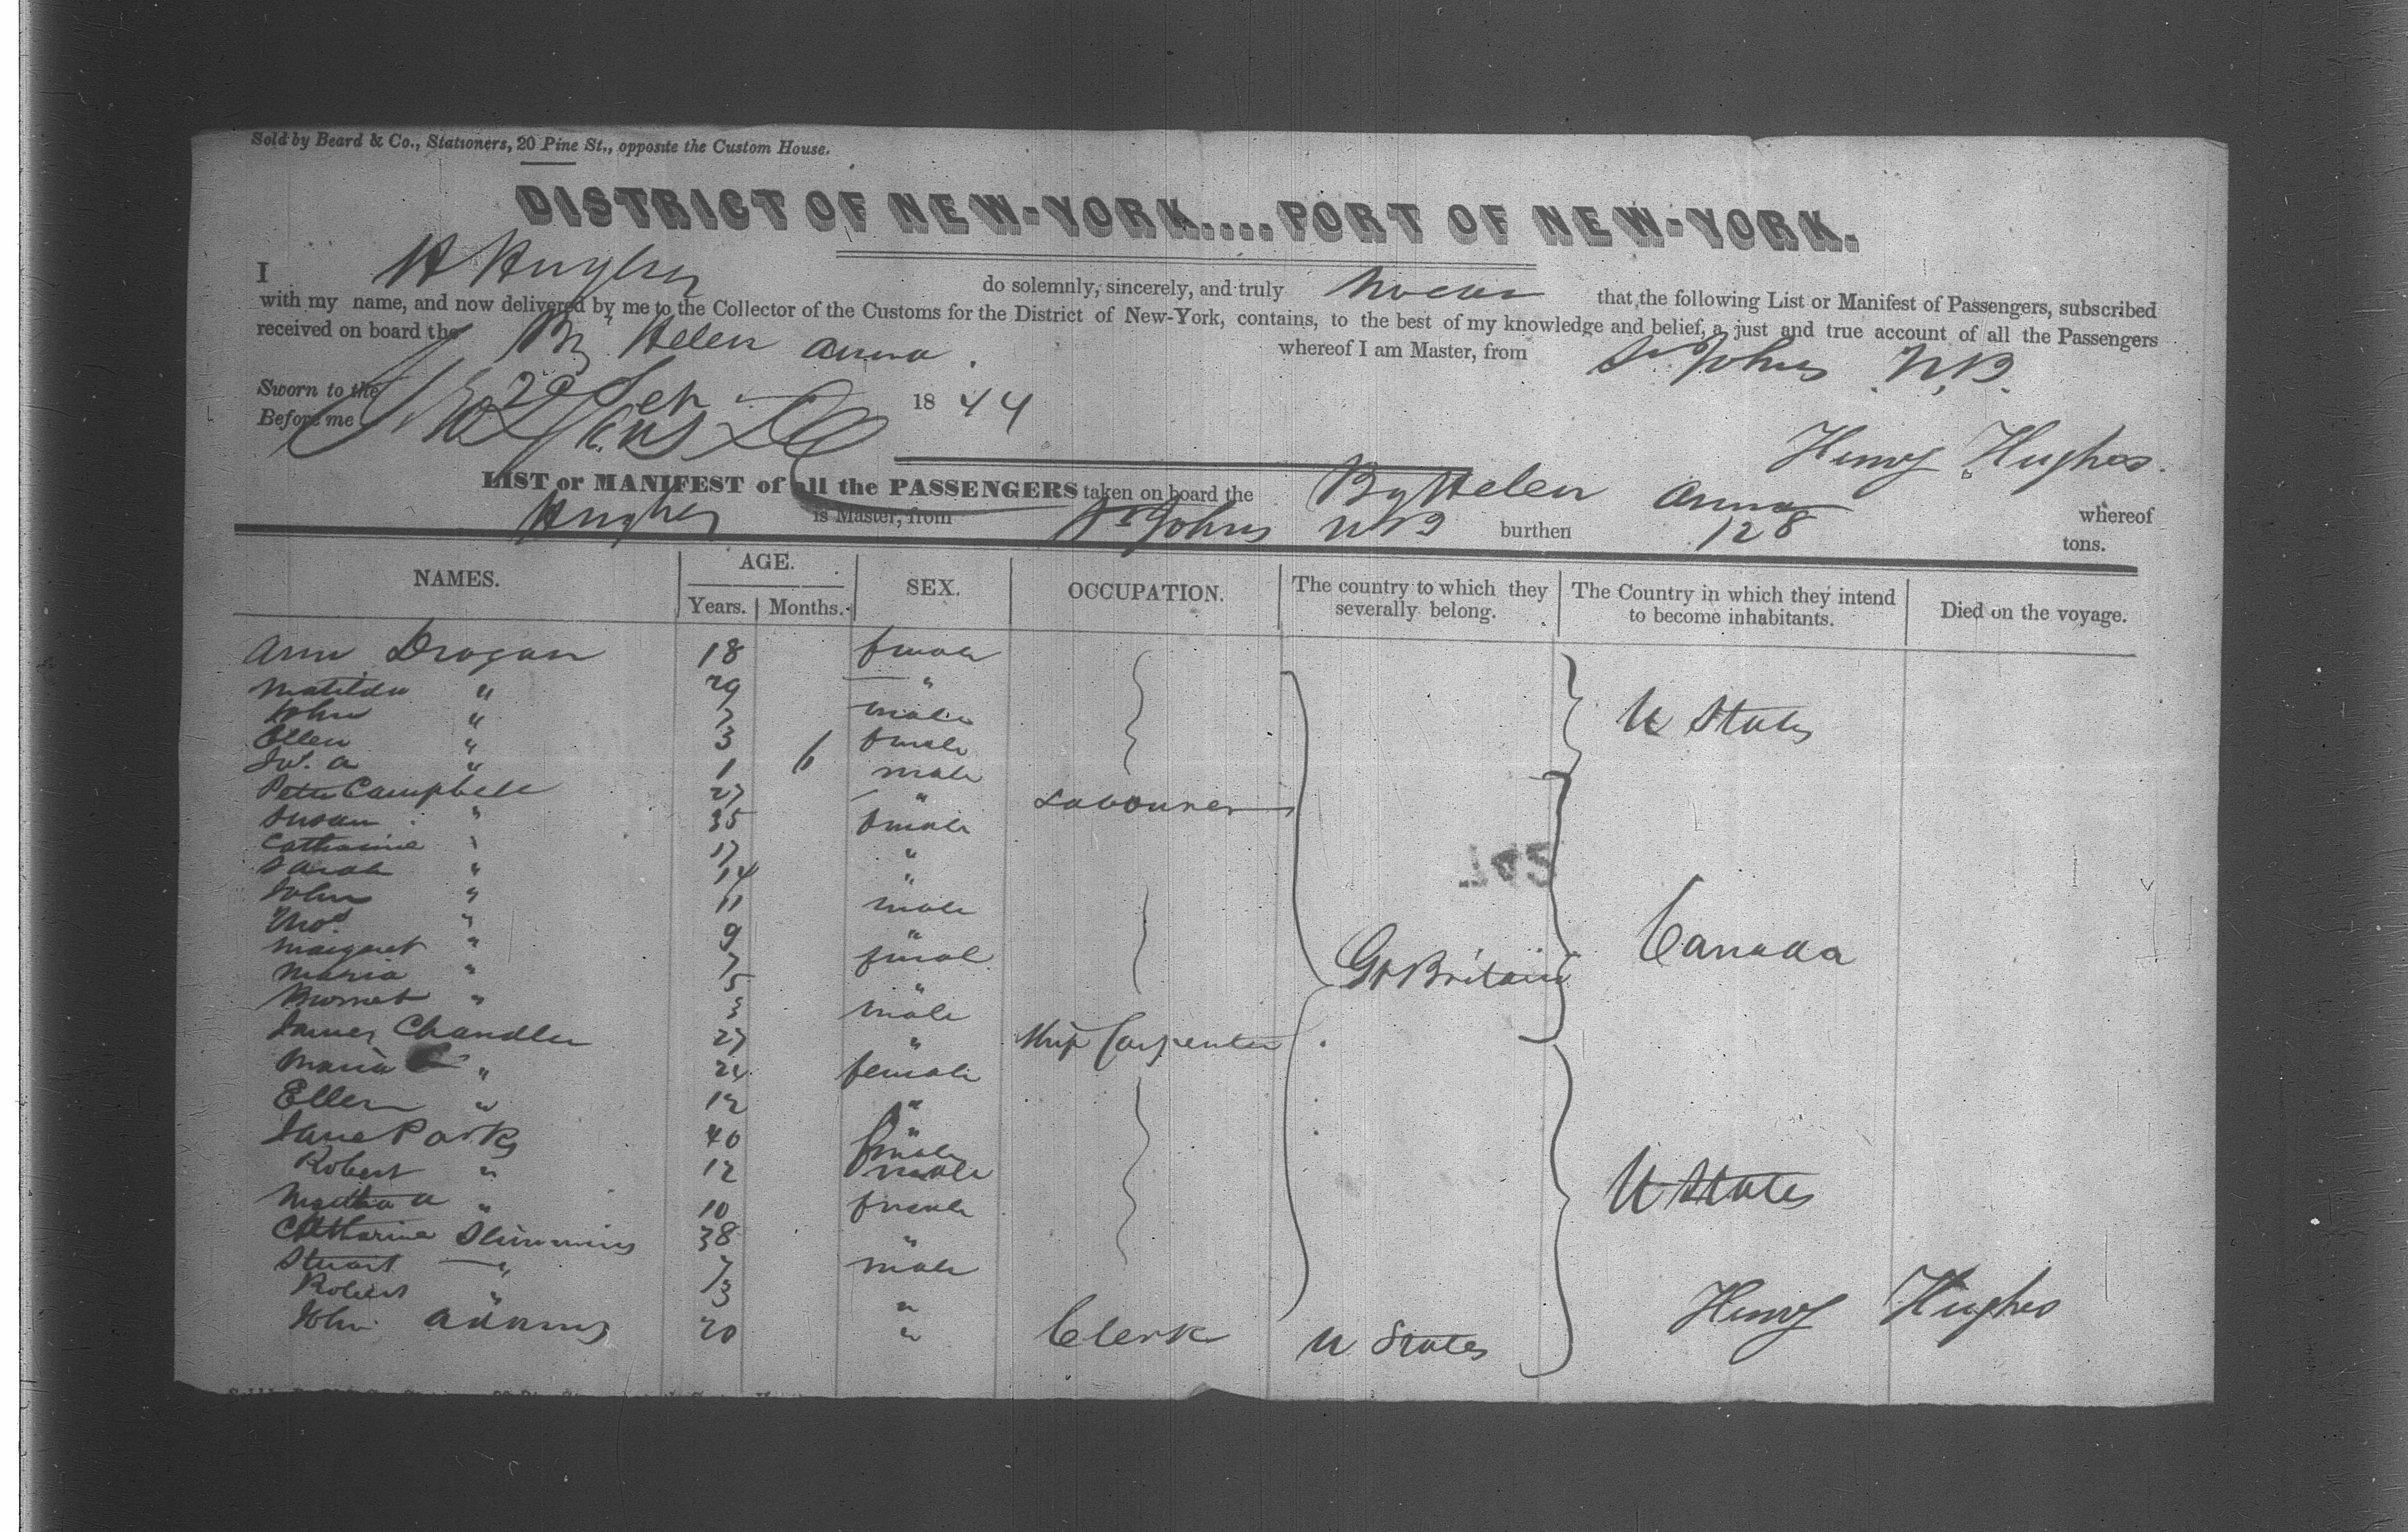 Sold by Beard & Co., Stationers, 20 Pine St., opposite the Custom House.
DISTRICT OF NEW-YORK....PORT OF NEW-YORK.
I H Hughes do solemnly, sincerely, and truly swear that the following List or Manifest of Passengers, subscribed
with my name, and now delivered by me to the Collector of the Customs for the District of New-York, contains, to the best of my knowledge and belief, a just and true account of all the Passengers
received on board the Bg Helen Anna. whereof I am Master, from St Johns N.B.
Sworn to the 20 Sep 1844
Before me
Henry Hughes.
LIST or MANIFEST of all the PASSENGERS taken on board the Bg Helen Anna whereof
Hughes is Master, from St Johns NB burthen 128 tons.
NAMES. AGE. SEX. OCCUPATION. The country to which they severally belong. The Country in which they intend to become inhabitants. Died on the voyage.
Years. Months.
Ann Drogan 18 female
Matilda " 29 " U States
John " 7 male
Ellen " 3 female
" 1 6 male
Peter Campbell 27 " Labourer
Susan " 35 female
Catharine " 17 "
Sarah " 14 "
John " 11 male
Thos " 9 " Canada
Margaret " 7 femal Gt Britain
Maria " 5 "
" 3 male
James Chandler 27 " Ship Carpenter
Maria " 24 female
Ellen " 12 "
Jane Parks 40 " female
Robert " 12 male U States
Martha A " 10 female
Catharine Slimmins 38 "
Stuart " 7 male
Robert " 3 "
John Adams 20 " Clerk U States
Henry Hughes